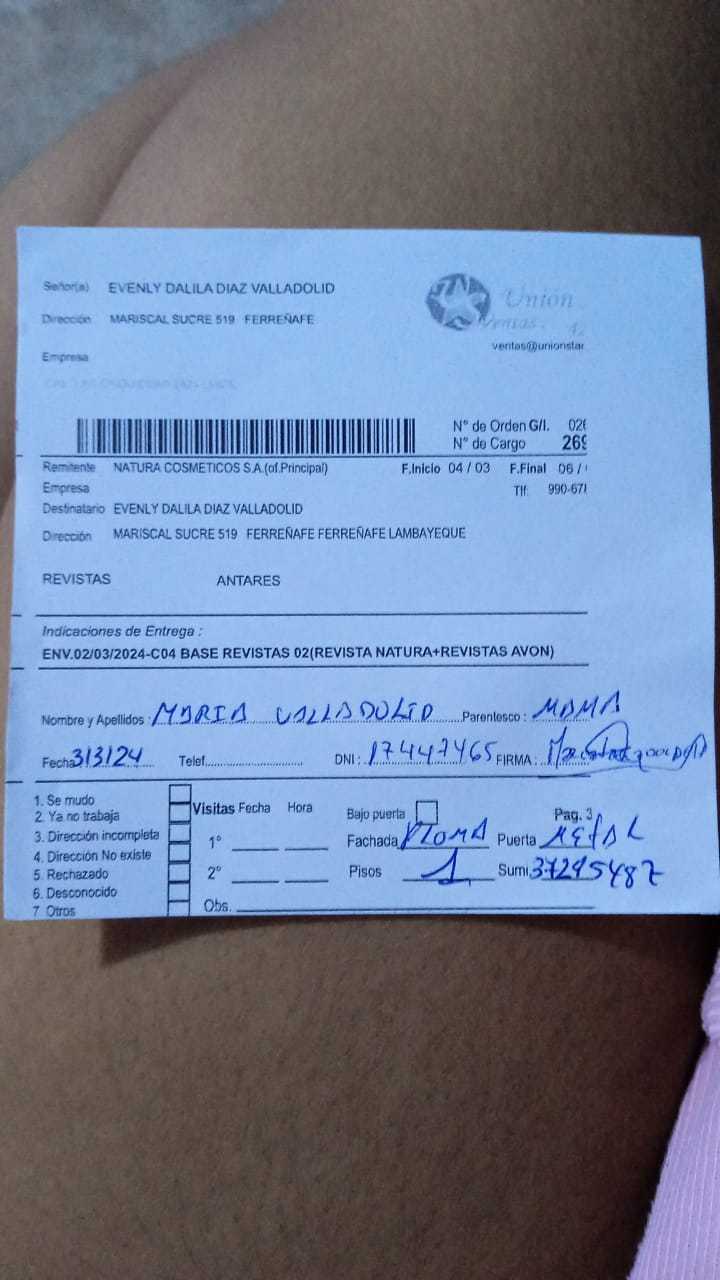 Señor(a) EVENLY DALILA DIAZ VALLADOLID
Dirección MARISCAL SUCRE 519 FERREÑAFE
Unión
Ventas.
ventas@unionstar
Empresa
N° de Orden G/I. 026
N° de Cargo 269
Remitente NATURA COSMETICOS S.A.(of.Principal) F.Inicio 04 / 03 F.Final 06 /
Empresa Tlf: 990-678
Destinatario EVENLY DALILA DIAZ VALLADOLID
Dirección MARISCAL SUCRE 519 FERREÑAFE FERREÑAFE LAMBAYEQUE
REVISTAS ANTARES
Indicaciones de Entrega :
ENV.02/03/2024-C04 BASE REVISTAS 02(REVISTA NATURA+REVISTAS AVON)
Nombre y Apellidos : MARIA VALLADOLID Parentesco : MAMA
Fecha 3/3/24 Telef. DNI : 17447465 FIRMA :
1. Se mudo
2. Ya no trabaja
3. Dirección incompleta
4. Dirección No existe
5. Rechazado
6. Desconocido
7 Otros
Visitas Fecha Hora
1°
2°
Obs.
Bajo puerta Pag. 3
Fachada PLOMA Puerta METAL
Pisos 1 Sumi 37295487